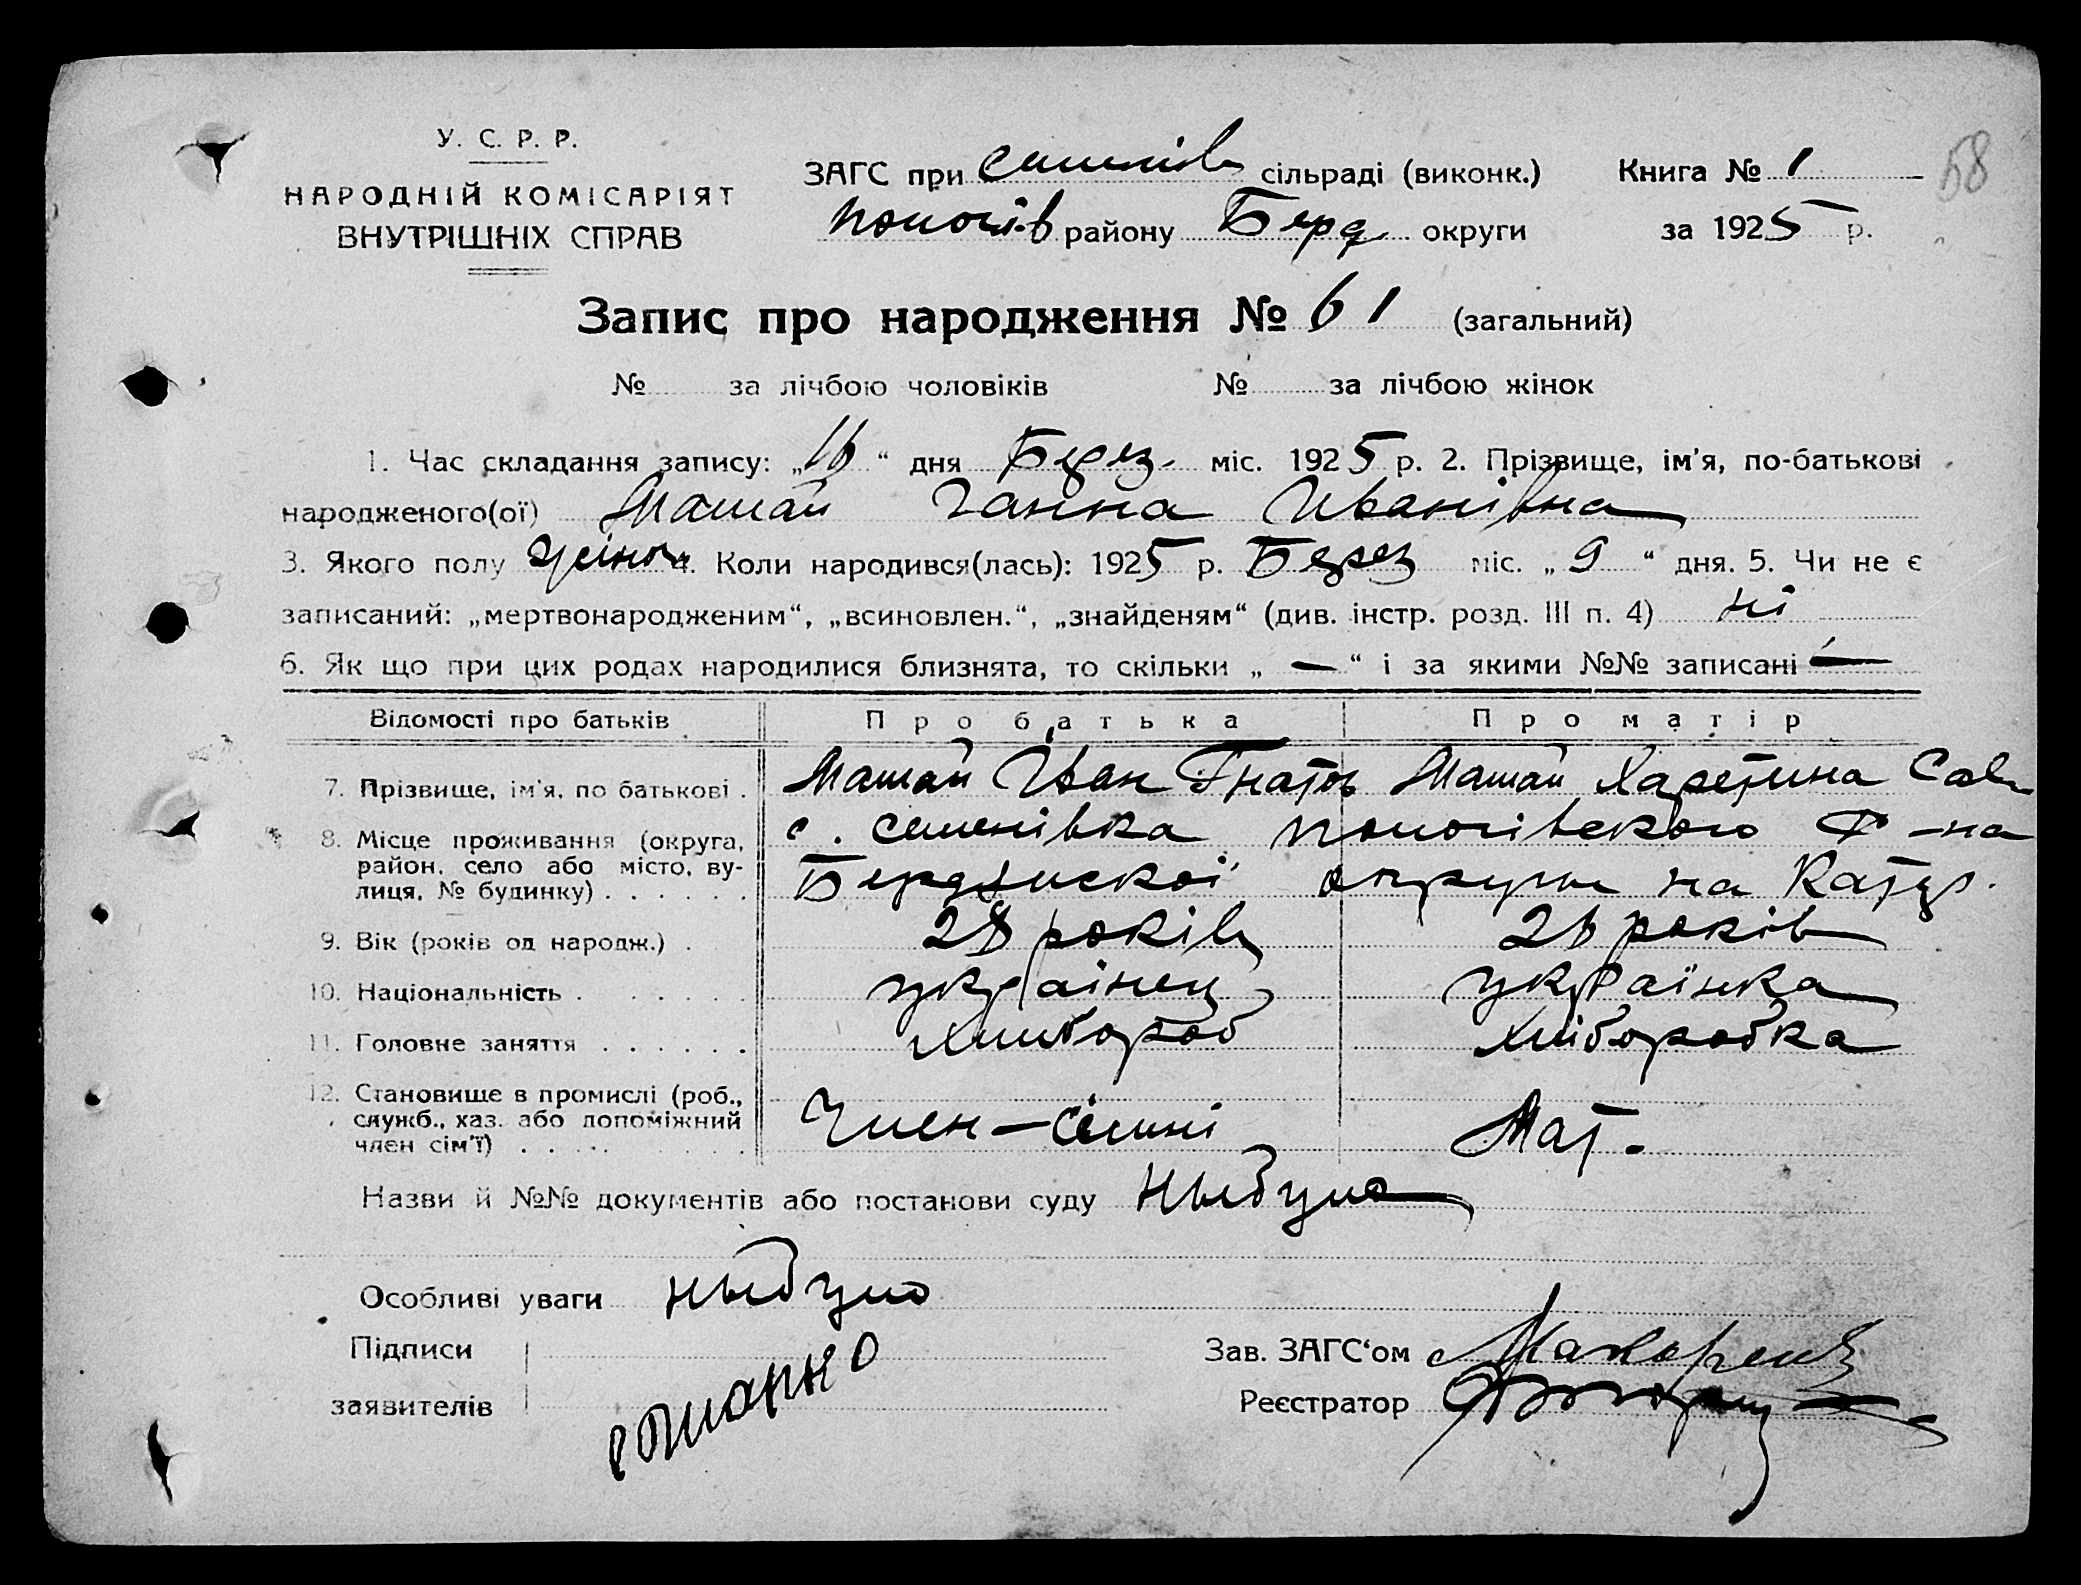 У. С. Р. Р.
НАРОДНІЙ КОМІСАРІЯТ
ВНУТРІШНІХ СПРАВ
ЗАГС при Семенів сільраді (виконк.) Книга № 1 58
Пологів району Берд. округи за 1925 р.
Запис про народження № 61 (загальний)
№ за лічбою чоловіків № за лічбою жінок
1. Час складання запису: „16“ дня Берез. міс. 1925 р. 2. Прізвище, ім'я, по-батькові
народженого(ої) Машай Ганна Иванівна
3. Якого полу жіноч. 4. Коли народився(лась): 1925 р. Берез міс. „9“ дня. 5. Чи не є
записаний: „мертвонародженим“, „всиновлен.“, „знайденям“ (див. інстр. розд. III п. 4) ні
6. Як що при цих родах народилися близнята, то скільки „ — “ і за якими №№ записані —
Відомості про батьків Про батька Про матір
7. Прізвище, ім'я, по батькові . Машай Іван Гнатов Машай Харетина Сав
8. Місце проживання (округа, район, село або місто, вулиця, № будинку) . . . . . . с. Семенівка Пологівского Р-на
Бердянскої округи на Катер.
9. Вік (років од народж.) . 28 років 26 років
10. Національність . . . . . . українец українка
11. Головне заняття . . . . . . хлибороб хліборобка
12. Становище в промислі (роб., служб., хаз. або допоміжний член сім'ї) . . . . . Член-сімні Мат.
Назви й №№ документів або постанови суду Ныбуло
Особливі уваги ныбуло
Підписи
заявителів
Зав. ЗАГС‘ом
Реєстратор